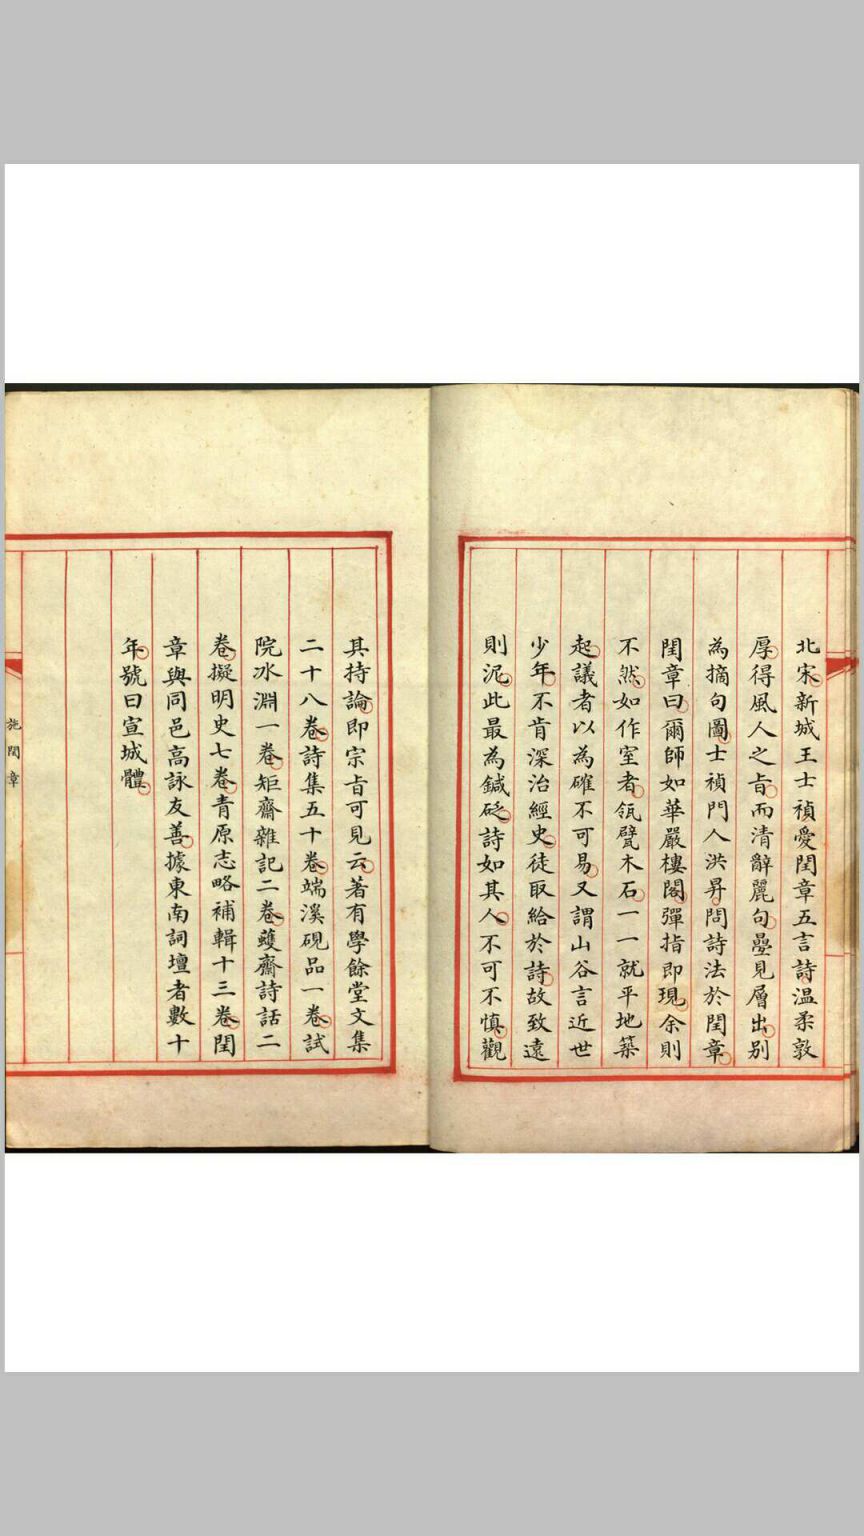 北宋新城王士禎愛閏章五言詩温柔敦
厚得風人之旨而清辭麗句疊見層出别
為摘句圖士禎門人洪昇問詩法於閏章
閏章曰爾師如華嚴樓閣彈指即現余則
不然如作室者瓴甓木石一一就平地築
起議者以為確不可易又謂山谷言近世
少年不肯深治經史徒取給於詩故致遠
則泥此最為鍼砭詩如其人不可不慎觀
其持論即宗旨可見云著有學餘堂文集
二十八卷詩集五十卷端溪硯品一卷試
院氷淵一卷矩齋雜記二卷蠖齋詩話二
卷擬明史七卷青原志略補輯十三卷閏
章與同邑高詠友善據東南詞壇者數十
年號曰宣城體
施閏章